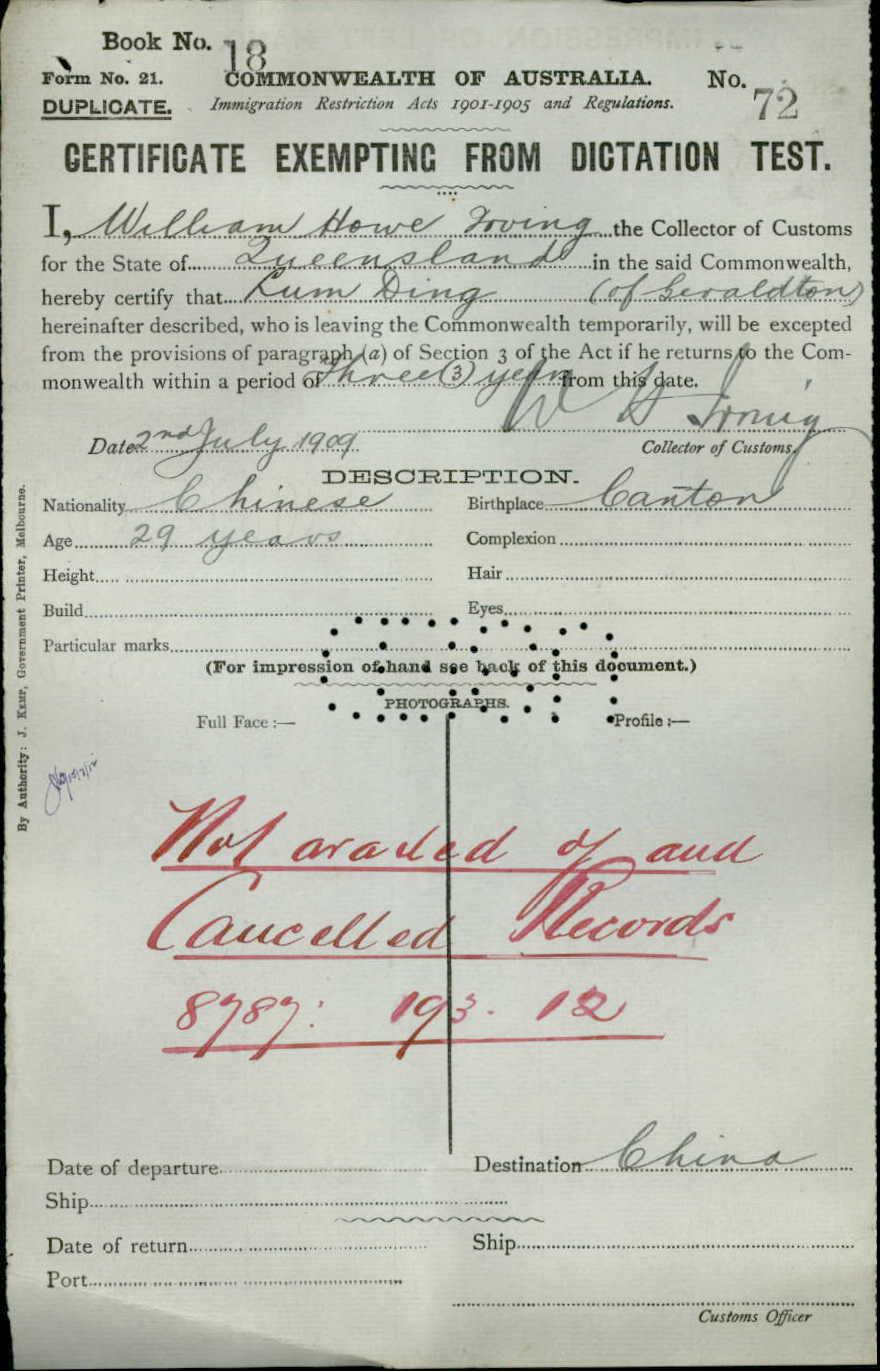 Book No. 18
Form No. 21. COMMONWEALTH OF AUSTRALIA. No. 72
DUPLICATE. Immigration Restriction Acts 1901-1905 and Regulations.
CERTIFICATE EXEMPTING FROM DICTATION TEST.
I, William Howe Irving the Collector of Customs
for the State of Queensland in the said Commonwealth,
hereby certify that Lum Ding (of Geraldton)
hereinafter described, who is leaving the Commonwealth temporarily, will be excepted
from the provisions of paragraph (a) of Section 3 of the Act if he returns to the Com-
monwealth within a period of Three (3) years from this date.
W H Irving
Date 2nd July 1909. Collector of Customs.
DESCRIPTION.
Nationality Chinese Birthplace Canton
Age 29 years Complexion
Height Hair
Build Eyes
Particular marks
(For impression of hand see back of this document.)
PHOTOGRAPHS.
Full Face :— Profile :—
Not availed of and
Cancelled Records
8787: 193. 12
Date of departure Destination China
Ship
Date of return Ship
Port
Customs Officer
By Authority: J. Kemp, Government Printer, Melbourne.